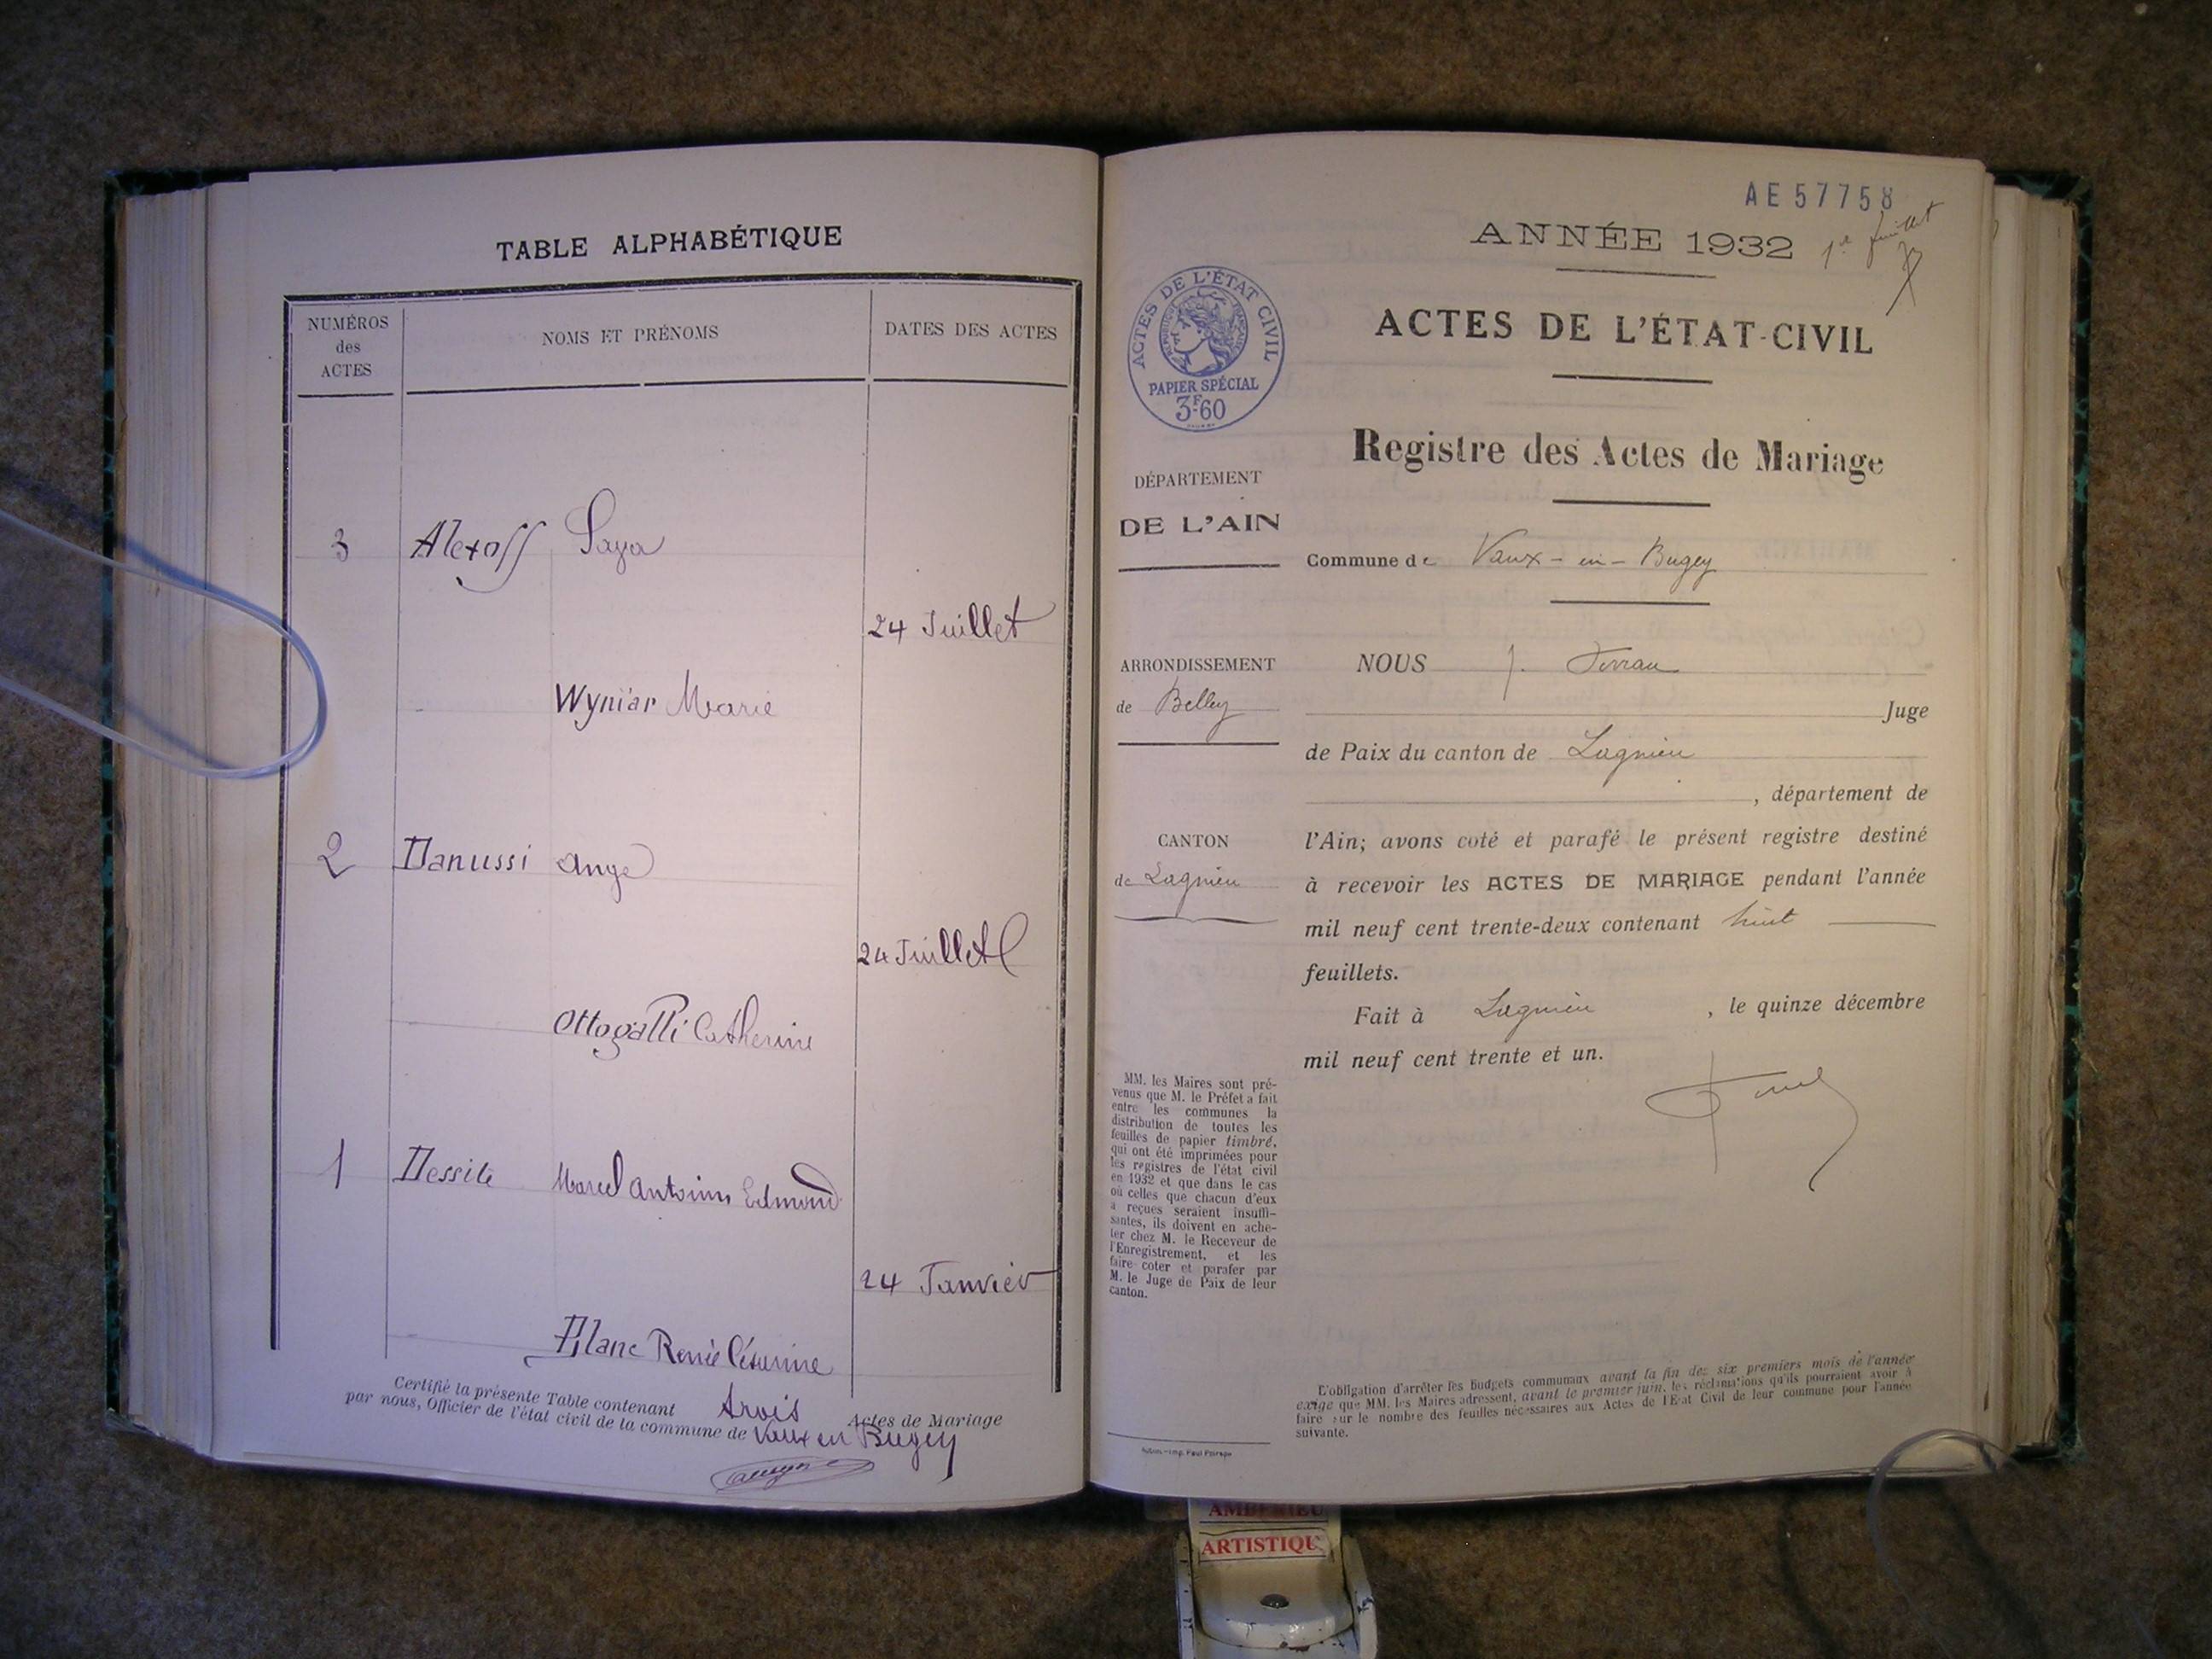 TABLE ALPHABÉTIQUE
NUMÉROS
des
ACTES
NOMS ET PRÉNOMS
DATES DES ACTES
3 Alexoff Saya
24 Juillet
Wyniar Marie
2 Danussi Ange
24 Juillet
Ottogalli Catherine
1 Dessite Marcel Antoine Edmond
24 Janvier
Blanc Renée Césarine
Certifié la présente Table contenant trois Actes de Mariage
par nous, Officier de l'état civil de la commune de Vaux en Bugey
AE 57758
ANNÉE 1932
1er feuillet
ACTES DE L'ÉTAT-CIVIL
Registre des Actes de Mariage
ACTES DE L'ÉTAT CIVIL
RÉPUBLIQUE FRANÇAISE
PAPIER SPÉCIAL
3F.60
DÉPARTEMENT
DE L'AIN
ARRONDISSEMENT
de Belley
CANTON
de Lagnieu
Commune de Vaux-en-Bugey
NOUS J.
Juge
de Paix du canton de Lagnieu
, département de
l'Ain; avons coté et parafé le présent registre destiné
à recevoir les ACTES DE MARIAGE pendant l'année
mil neuf cent trente-deux contenant huit
feuillets.
Fait à Lagnieu, le quinze décembre
mil neuf cent trente et un.
MM. les Maires sont pré-
venus que M. le Préfet a fait
entre les communes la
distribution de toutes les
feuilles de papier timbré,
qui ont été imprimées pour
les registres de l'état civil
en 1932 et que dans le cas
où celles que chacun d'eux
a reçues seraient insuffi-
santes, ils doivent en ache-
ter chez M. le Receveur de
l'Enregistrement, et les
faire coter et parafer par
M. le Juge de Paix de leur
canton.
L'obligation d'arrêter les Budgets communaux avant la fin des six premiers mois de l'année
exige que MM. les Maires adressent, avant le premier juin, les réclamations qu'ils pourraient avoir à
faire sur le nombre des feuilles nécessaires aux Actes de l'Etat Civil de leur commune pour l'année
suivante.
AMBÉRIEU
ARTISTIQU